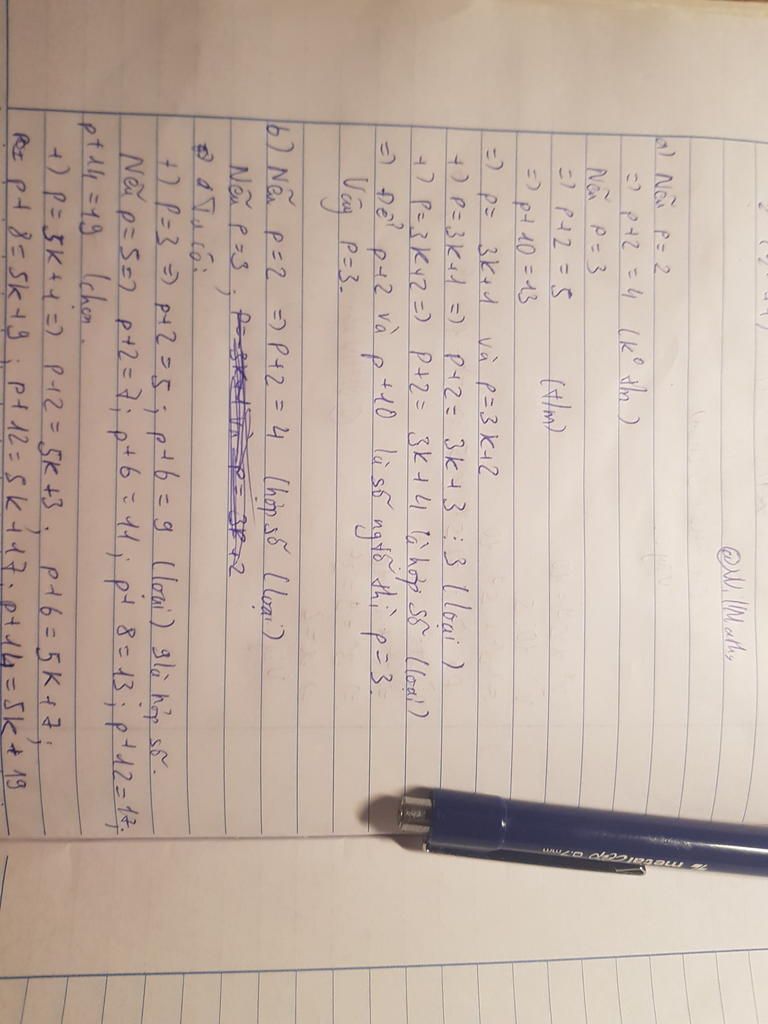 @WillMaths
a) Nếu p = 2
=) p+2 = 4 (k⁰ t/m)
Nếu p = 3
=) p+2 = 5
(t/m)
=) p+10 = 13
=) p = 3k+1 và p = 3k+2
+) p = 3k+1 =) p+2 = 3k+3 ⋮ 3 (loại)
+) p = 3k+2 =) p+2 = 3k+4 là hợp số (loại)
=) Để p+2 và p+10 là số ngtố thì p = 3.
Vậy p = 3.
b) Nếu p = 2 =) p+2 = 4 (hợp số (loại)
Nếu p = 3 ;
có:
+) p = 3 =) p+2 = 5 ; p+6 = 9 (loại) 9 là hợp số.
Nếu p = 5 =) p+2 = 7 ; p+6 = 11 ; p+8 = 13 ; p+12 = 17;
p+14 = 19 (chọn.
+) p = 5k+1 =) p+2 = 5k+3 ; p+6 = 5k+7 ;
p+8 = 5k+9 ; p+12 = 5k+17 ; p+14 = 5k+19
metal clip 0.7mm